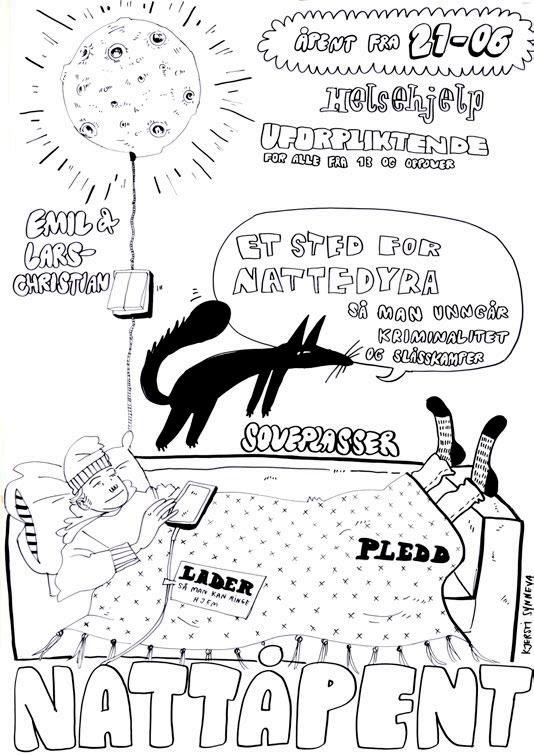 ÅPENT FRA 21-06
Helsehjelp
UFORPLIKTENDE
FOR ALLE FRA 13 OG OPPOVER
EMIL &
LARS-
CHRISTIAN
ET STED FOR
NATTEDYRA
SÅ MAN UNNGÅR
KRIMINALITET
OG SLÅSSKAMPER
SOVEPLASSER
PLEDD
LADER
SÅ MAN KAN RINGE
HJEM
KJERSTI SYNNEVA
NATTÅPENT